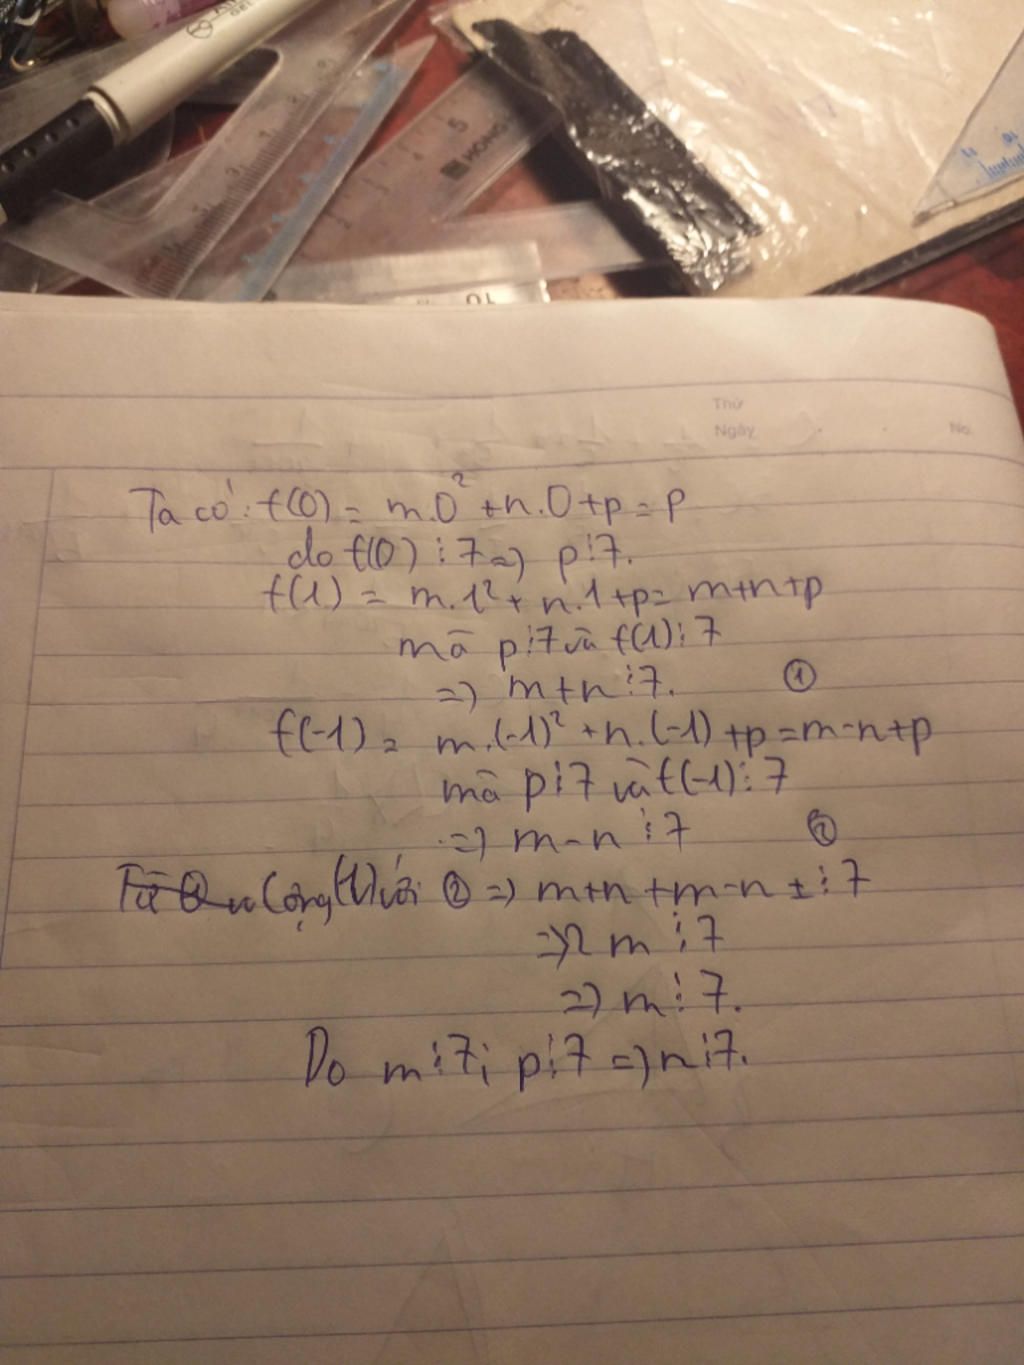 5
HONG
Thứ
Ngày
No.
Ta có: f(0) = m.0² + n.0 + p = p
do f(0) ⋮ 7 => p ⋮ 7.
f(1) = m.1² + n.1 + p = m+n+p
mà p ⋮ 7 và f(1) ⋮ 7
=> m+n ⋮ 7. ①
f(-1) = m.(-1)² + n.(-1) + p = m-n+p
mà p ⋮ 7 và f(-1) ⋮ 7
=> m-n ⋮ 7 ②
Cộng (1) với ② => m+n + m-n ± ⋮ 7
=> 2m ⋮ 7
=> m ⋮ 7.
Do m ⋮ 7; p ⋮ 7 => n ⋮ 7.